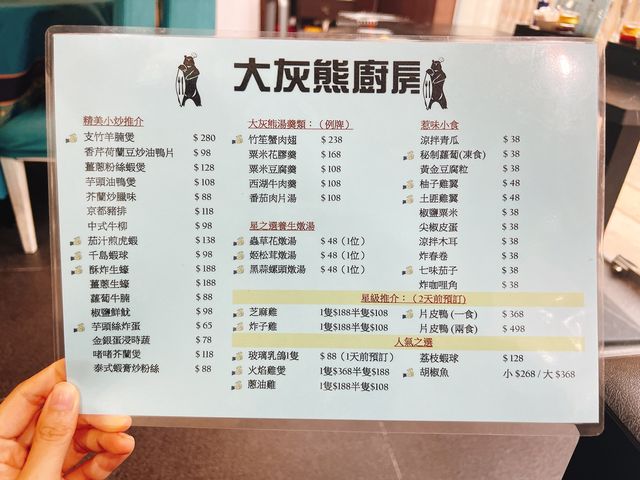 大灰熊廚房
精美小炒推介
支竹羊腩煲 $ 280
香芹荷蘭豆炒油鴨片 $ 98
薑蔥粉絲蝦煲 $ 128
芋頭油鴨煲 $ 108
芥蘭炒臘味 $ 88
京都豬排 $ 118
中式牛柳 $ 98
茄汁煎虎蝦 $ 138
千島蝦球 $ 98
酥炸生蠔 $ 188
薑蔥生蠔 $ 188
蘿蔔牛腩 $ 88
椒鹽鮮魷 $ 98
芋頭絲炸蛋 $ 65
金銀蛋浸時蔬 $ 78
啫啫芥蘭煲 $ 118
泰式蝦膏炒粉絲 $ 88
大灰熊湯羹類：（例牌）
竹笙蟹肉翅 $ 238
粟米花膠羹 $ 168
粟米豆腐羹 $ 108
西湖牛肉羹 $ 108
番茄肉片湯 $ 108
星之選養生燉湯
蟲草花燉湯 $ 48 (1位)
姬松茸燉湯 $ 48 (1位)
黑蒜螺頭燉湯 $ 48 (1位)
惹味小食
涼拌青瓜 $ 38
秘制蘿蔔(凍食) $ 38
黃金豆腐粒 $ 38
柚子雞翼 $ 48
土匪雞翼 $ 48
椒鹽粟米 $ 38
尖椒皮蛋 $ 38
涼拌木耳 $ 38
炸春卷 $ 38
七味茄子 $ 38
炸咖哩角 $ 38
星級推介：（2天前預訂)
芝麻雞 1隻$188半隻$108
炸子雞 1隻$188半隻$108
片皮鴨 (一食) $ 368
片皮鴨 (兩食) $ 498
人氣之選
玻璃乳鴿1隻 $ 88 (1天前預訂)
火焰雞煲 1隻$368半隻$188
蔥油雞 1隻$188半隻$108
荔枝蝦球 $ 128
胡椒魚 小 $268 / 大 $368